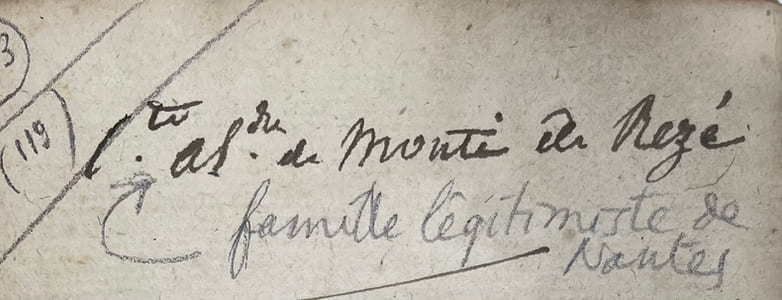 3
119
C.te al.dre de Monti de Rezé
famille légitimiste de
Nantes